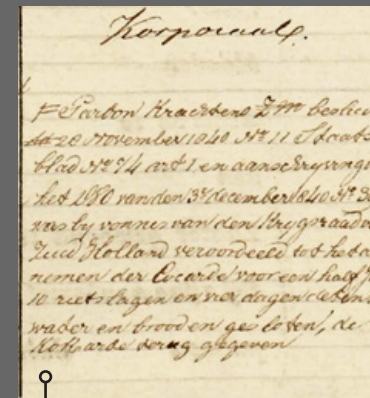 Korporaal.
Pardon Krachtens Z M besluit
20 November 1840 No 11 Staats
blad No 74 art 1 en aanschryving
het D v O van den 3e december 1840 No 3
by vonnis van den Krygsraad
Zuid Holland veroordeeld tot het a
nemen der Cocarde voor een half J
10 rietslagen en vier dagen detent
water en brood en gesloten, de
KoKarde terug gegeven